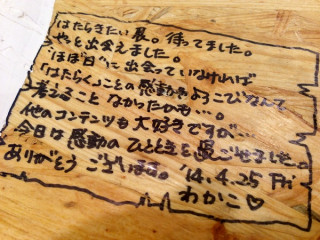 はたらきたい展。待ってました。
やっと出会えました。
"ほぼ日"に出会っていなければ
「はたらく」ことの感動やよろこびなんて
考えること なかったかも…。
他のコンテンツも大好きですが…
今日は感動のひとときを過ごせました。
ありがとう ございます。 '14.4.25 Fri
わかこ♡